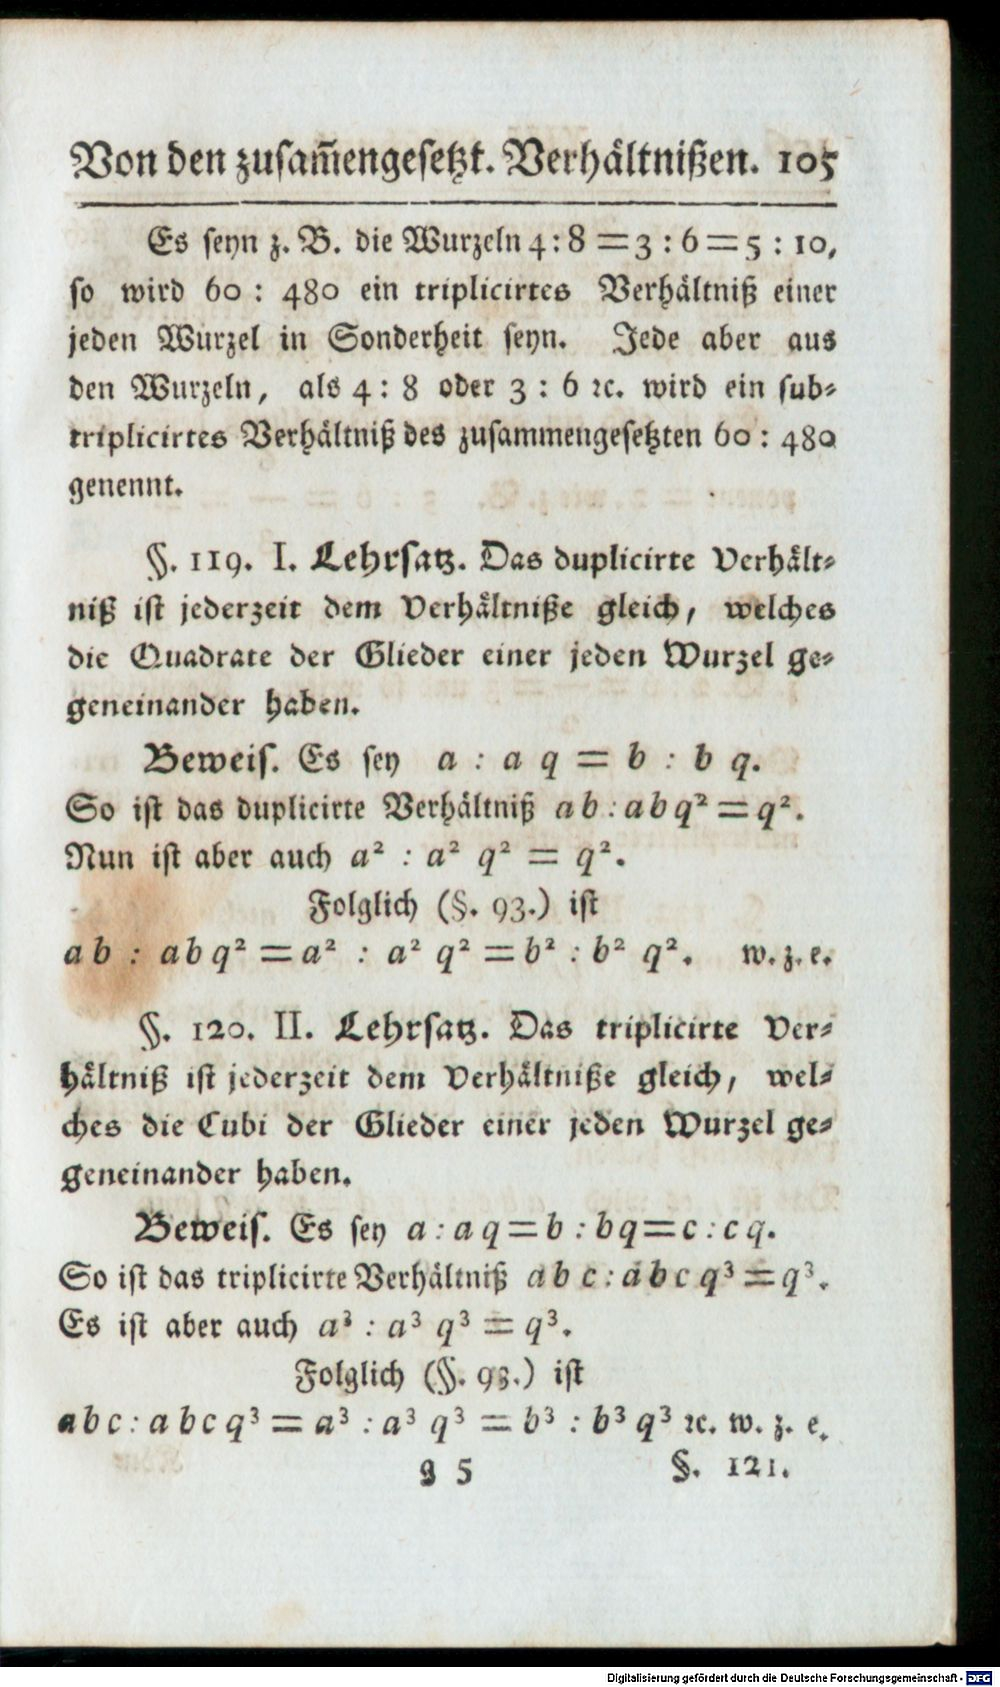 Von den zusam̄engesetzt. Verhältnißen. 105
Es seyn z. B. die Wurzeln 4 : 8 = 3 : 6 = 5 : 10,
so wird 60 : 480 ein triplicirtes Verhältniß einer
jeden Wurzel in Sonderheit seyn. Jede aber aus
den Wurzeln, als 4 : 8 oder 3 : 6 ꝛc. wird ein sub⸗
triplicirtes Verhältniß des zusammengesetzten 60 : 480
genennt.
§. 119. I. Lehrsatz. Das duplicirte Verhält⸗
niß ist jederzeit dem Verhältniße gleich, welches
die Quadrate der Glieder einer jeden Wurzel ge⸗
geneinander haben.
Beweis. Es sey a : a q = b : b q.
So ist das duplicirte Verhältniß a b : a b q² = q².
Nun ist aber auch a² : a² q² = q².
Folglich (§. 93.) ist
a b : a b q² = a² : a² q² = b² : b² q². w. z. e.
§. 120. II. Lehrsatz. Das triplicirte Ver⸗
hältniß ist jederzeit dem Verhältniße gleich, wel⸗
ches die Cubi der Glieder einer jeden Wurzel ge⸗
geneinander haben.
Beweis. Es sey a : a q = b : b q = c : c q.
So ist das triplicirte Verhältniß a b c : a b c q³ = q³.
Es ist aber auch a³ : a³ q³ = q³.
Folglich (§. 93.) ist
a b c : a b c q³ = a³ : a³ q³ = b³ : b³ q³ ꝛc. w. z. e.
5 §. 121.
Digitalisierung gefördert durch die Deutsche Forschungsgemeinschaft - DFG